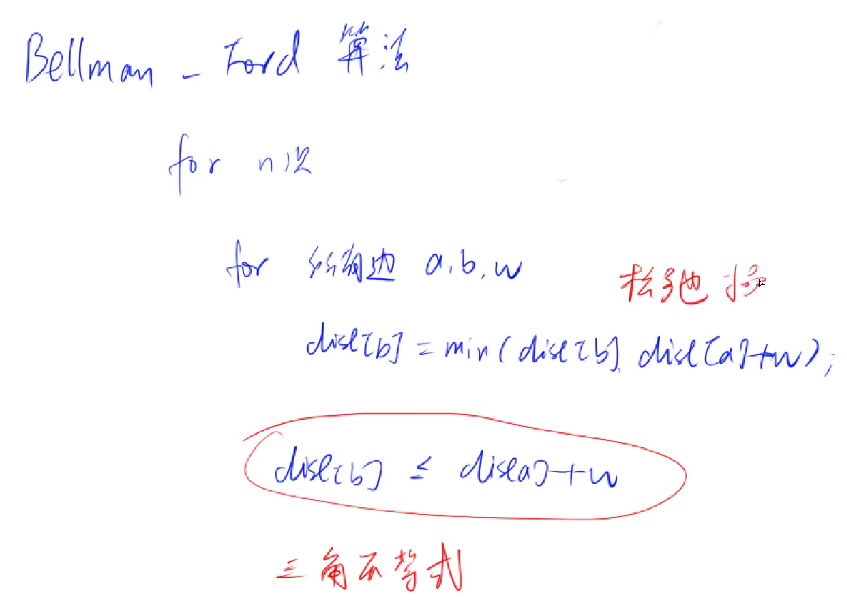 Bellman - Ford 算法
for n次
for 所有边 a,b,w
松弛
dist[b] = min(dist[b], dist[a]+w);
dist[b] ≤ dist[a]+w
三角不等式